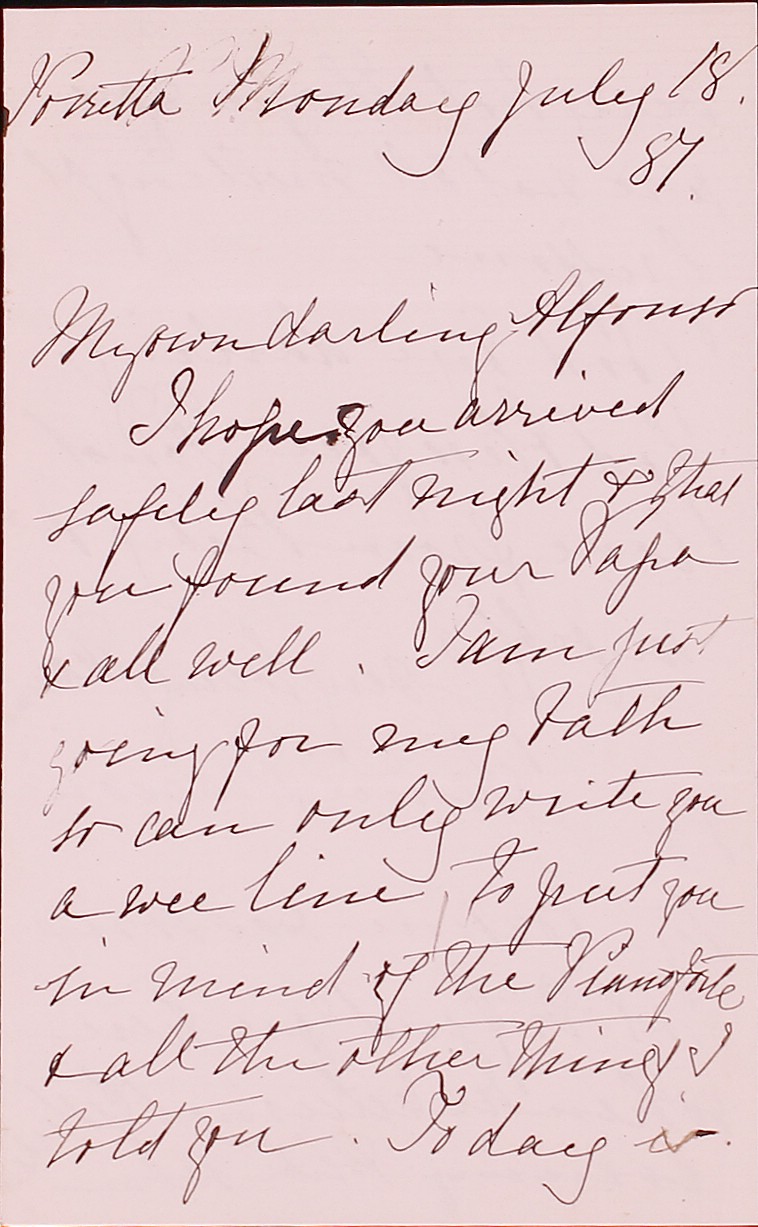 Porretta Monday July 18.
87.
My own darling Alfonso
I hope you arrived
safely last night & that
you found your Papa
& all well. I am just
going for my bath
so can only write you
a wee line, to put you
in mind of the Pianoforte
& all the other things I
told you. Today is